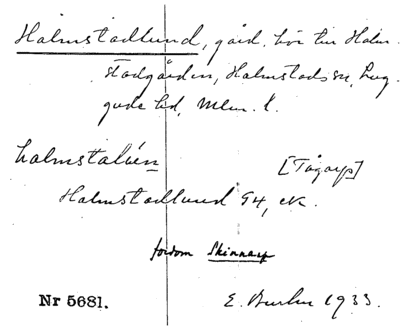 Halmstadlund, gård, hör till Halm-
stadgården, Halmstads sn, Lug-
gude hd, Mlm. l.
halmstalúén [Tågarp]
Halmstadlund 94, ek.
fordom Skinnarp
Nr 5681. E. 1933.